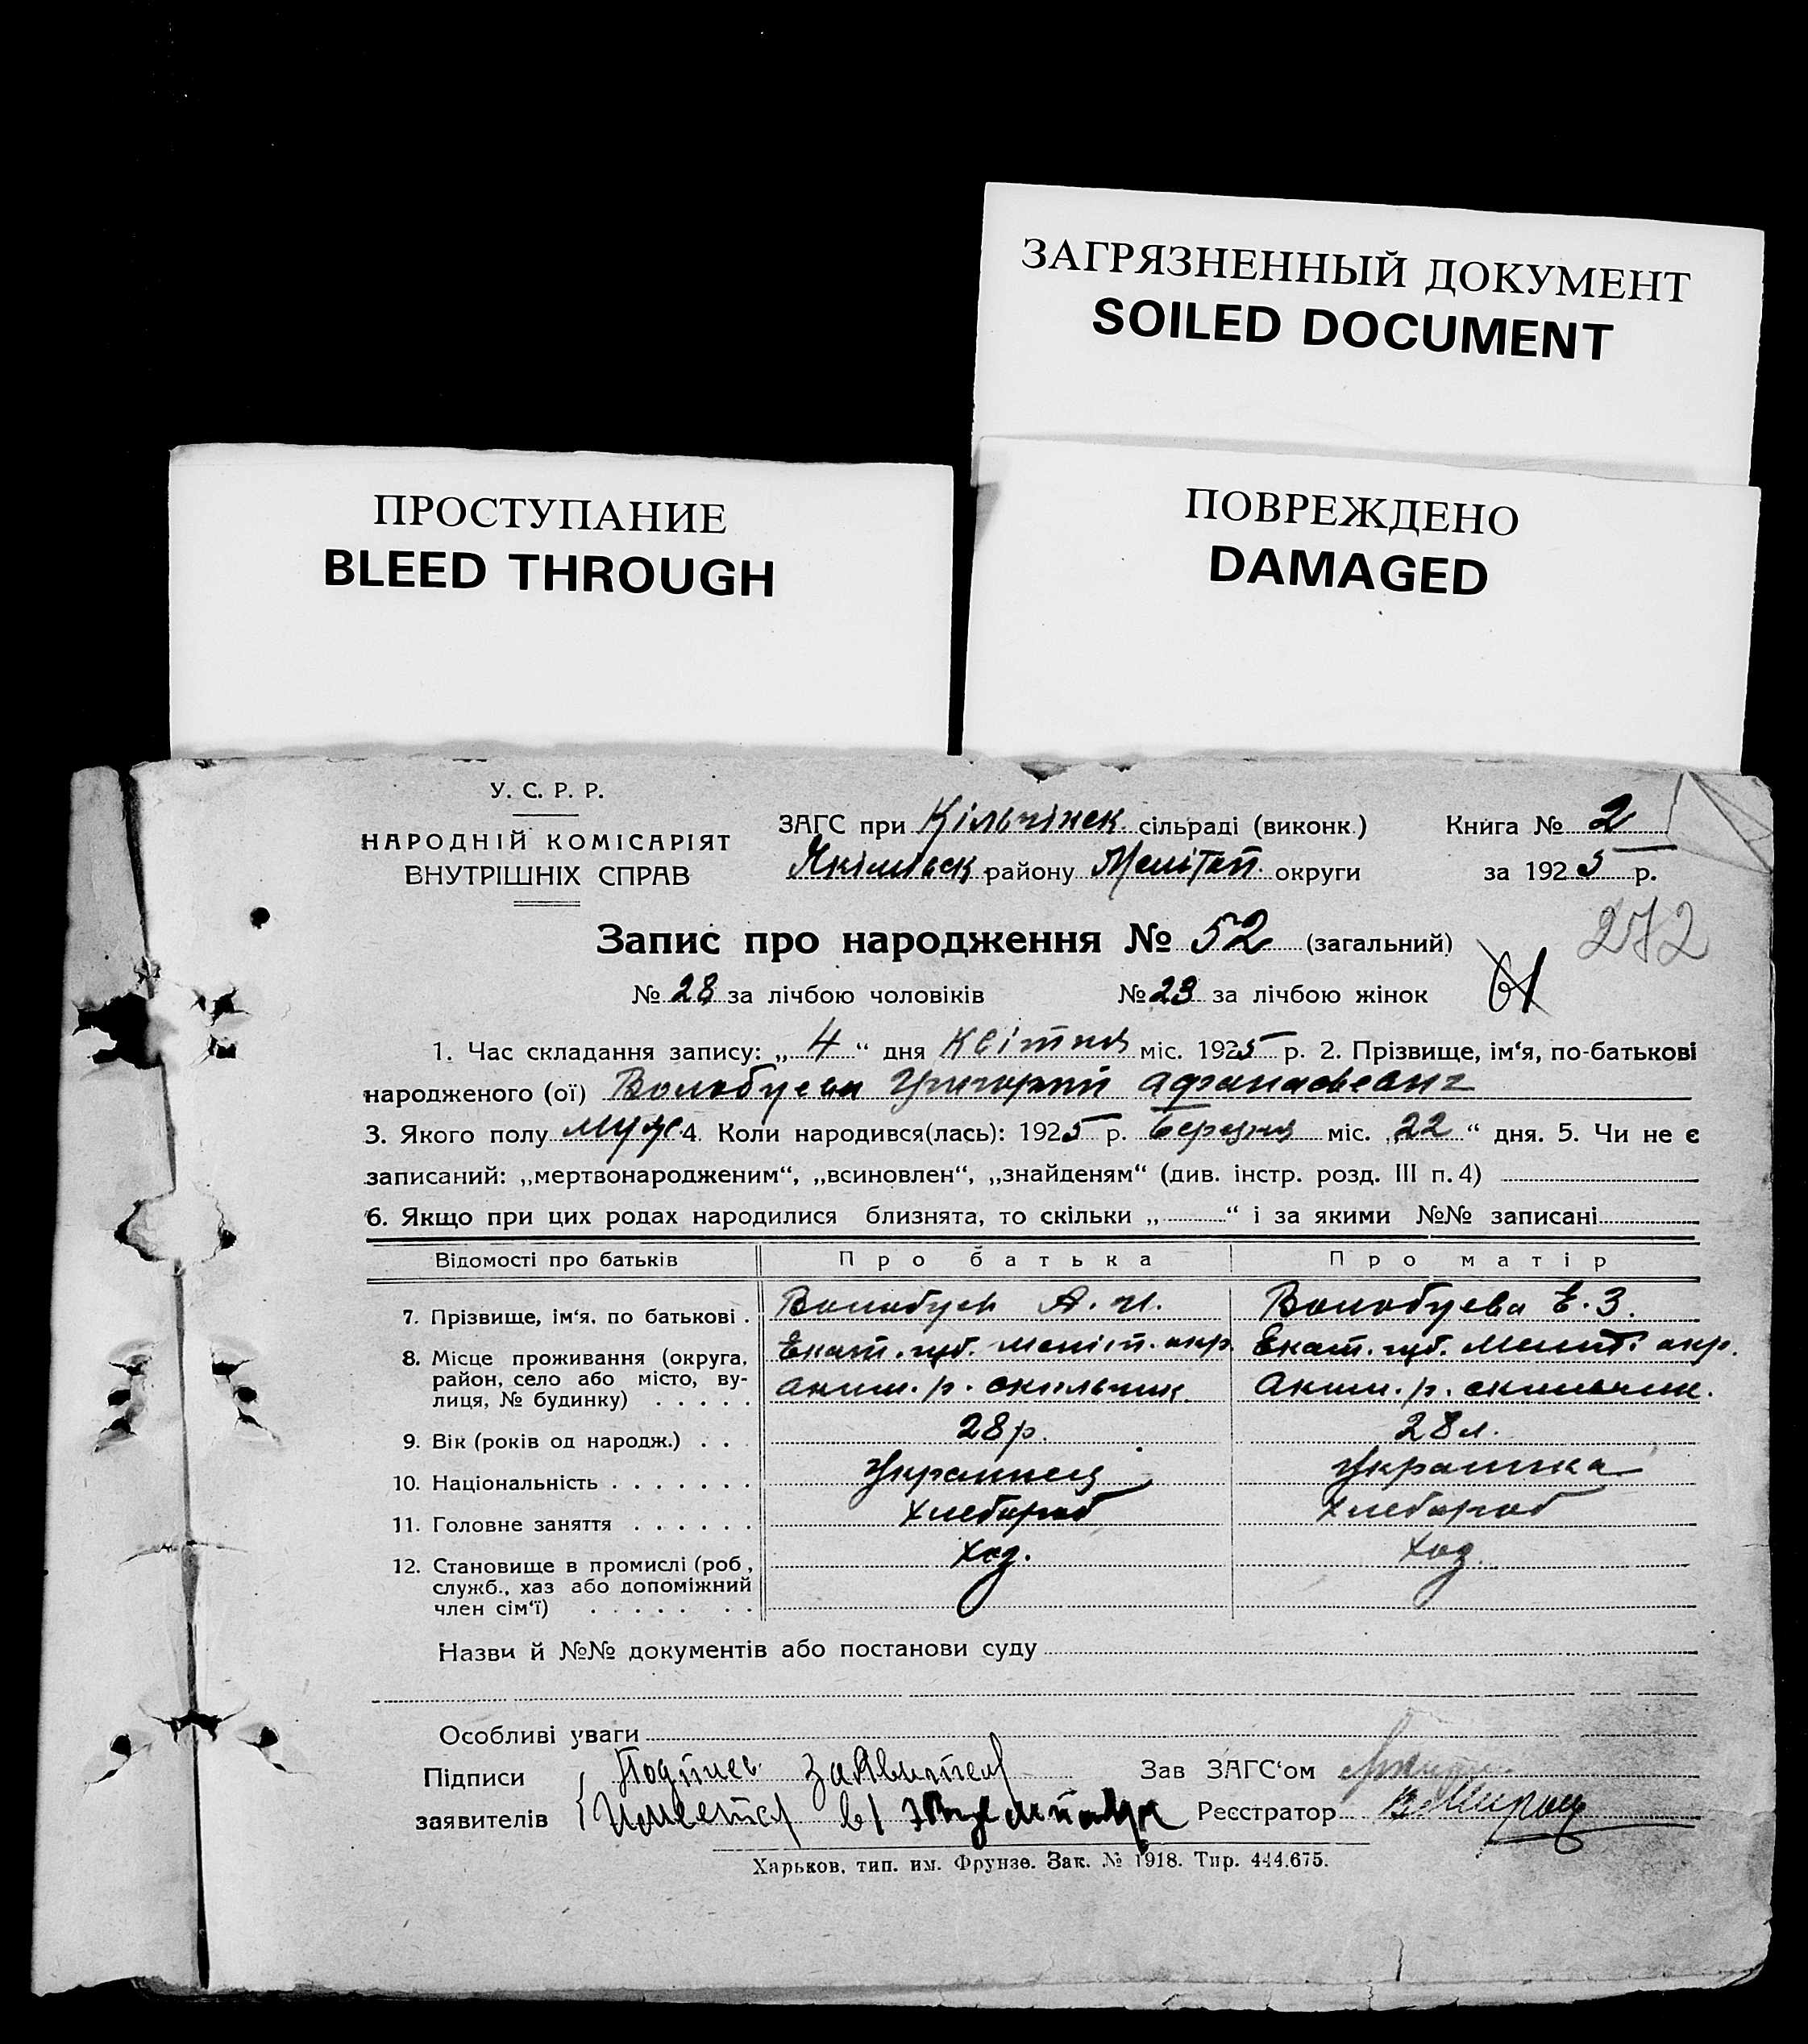 ЗАГРЯЗНЕННЫЙ ДОКУМЕНТ
SOILED DOCUMENT
ПРОСТУПАНИЕ
BLEED THROUGH
ПОВРЕЖДЕНО
DAMAGED
У. С. Р. Р.
НАРОДНІЙ КОМІСАРІЯТ
ВНУТРІШНІХ СПРАВ
ЗАГС при Кільчінск сільраді (виконк.)
Якімівськ району Меліт. округи
Книга № 2
за 1925 р.
272
Запис про народження № 52 (загальний)
61
№ 28 за лічбою чоловіків № 23 за лічбою жінок
1. Час складання запису: „ 4 “ дня Квітня міс. 1925 р. 2. Прізвище, ім‘я, по-батькові
народженого (ої) Волобуева Григорий Афанасьевич
3. Якого полу муж. 4. Коли народився(лась): 1925 р. Березня міс. „ 22 “ дня. 5. Чи не є
записаний: „мертвонародженим“, „всиновлен“, „знайденям“ (див. інстр. розд. III п. 4)
6. Якщо при цих родах народилися близнята, то скільки „ “ і за якими №№ записані
Відомості про батьків Про батька Про матір
7. Прізвище, ім‘я, по батькові . Волобуев А. И. Волобуева Е. З.
8. Місце проживання (округа, Екат. губ. Меліт. окр. Екат. губ. Мелит. окр.
район, село або місто, вулиця, № будинку) . . . . . Аким. р.
Аким. р.
9. Вік (років од народж.) . . . 28 р. 28 л.
10. Національність . . . . . . . Украинец Украинка
11. Головне заняття . . . . . . Хлебороб Хлебороб
12. Становище в промислі (роб., Хоз. Хоз.
служб., хаз або допоміжний
член сім‘ї) . . . . . . .
Назви й №№ документів або постанови суду
Особливі уваги
Підписи Подпись заявителя Зав ЗАГС‘ом
заявителів Имеется в 1 Реєстратор
Харьков, тип. им. Фрунзе. Зак. № 1918. Тир. 444.675.